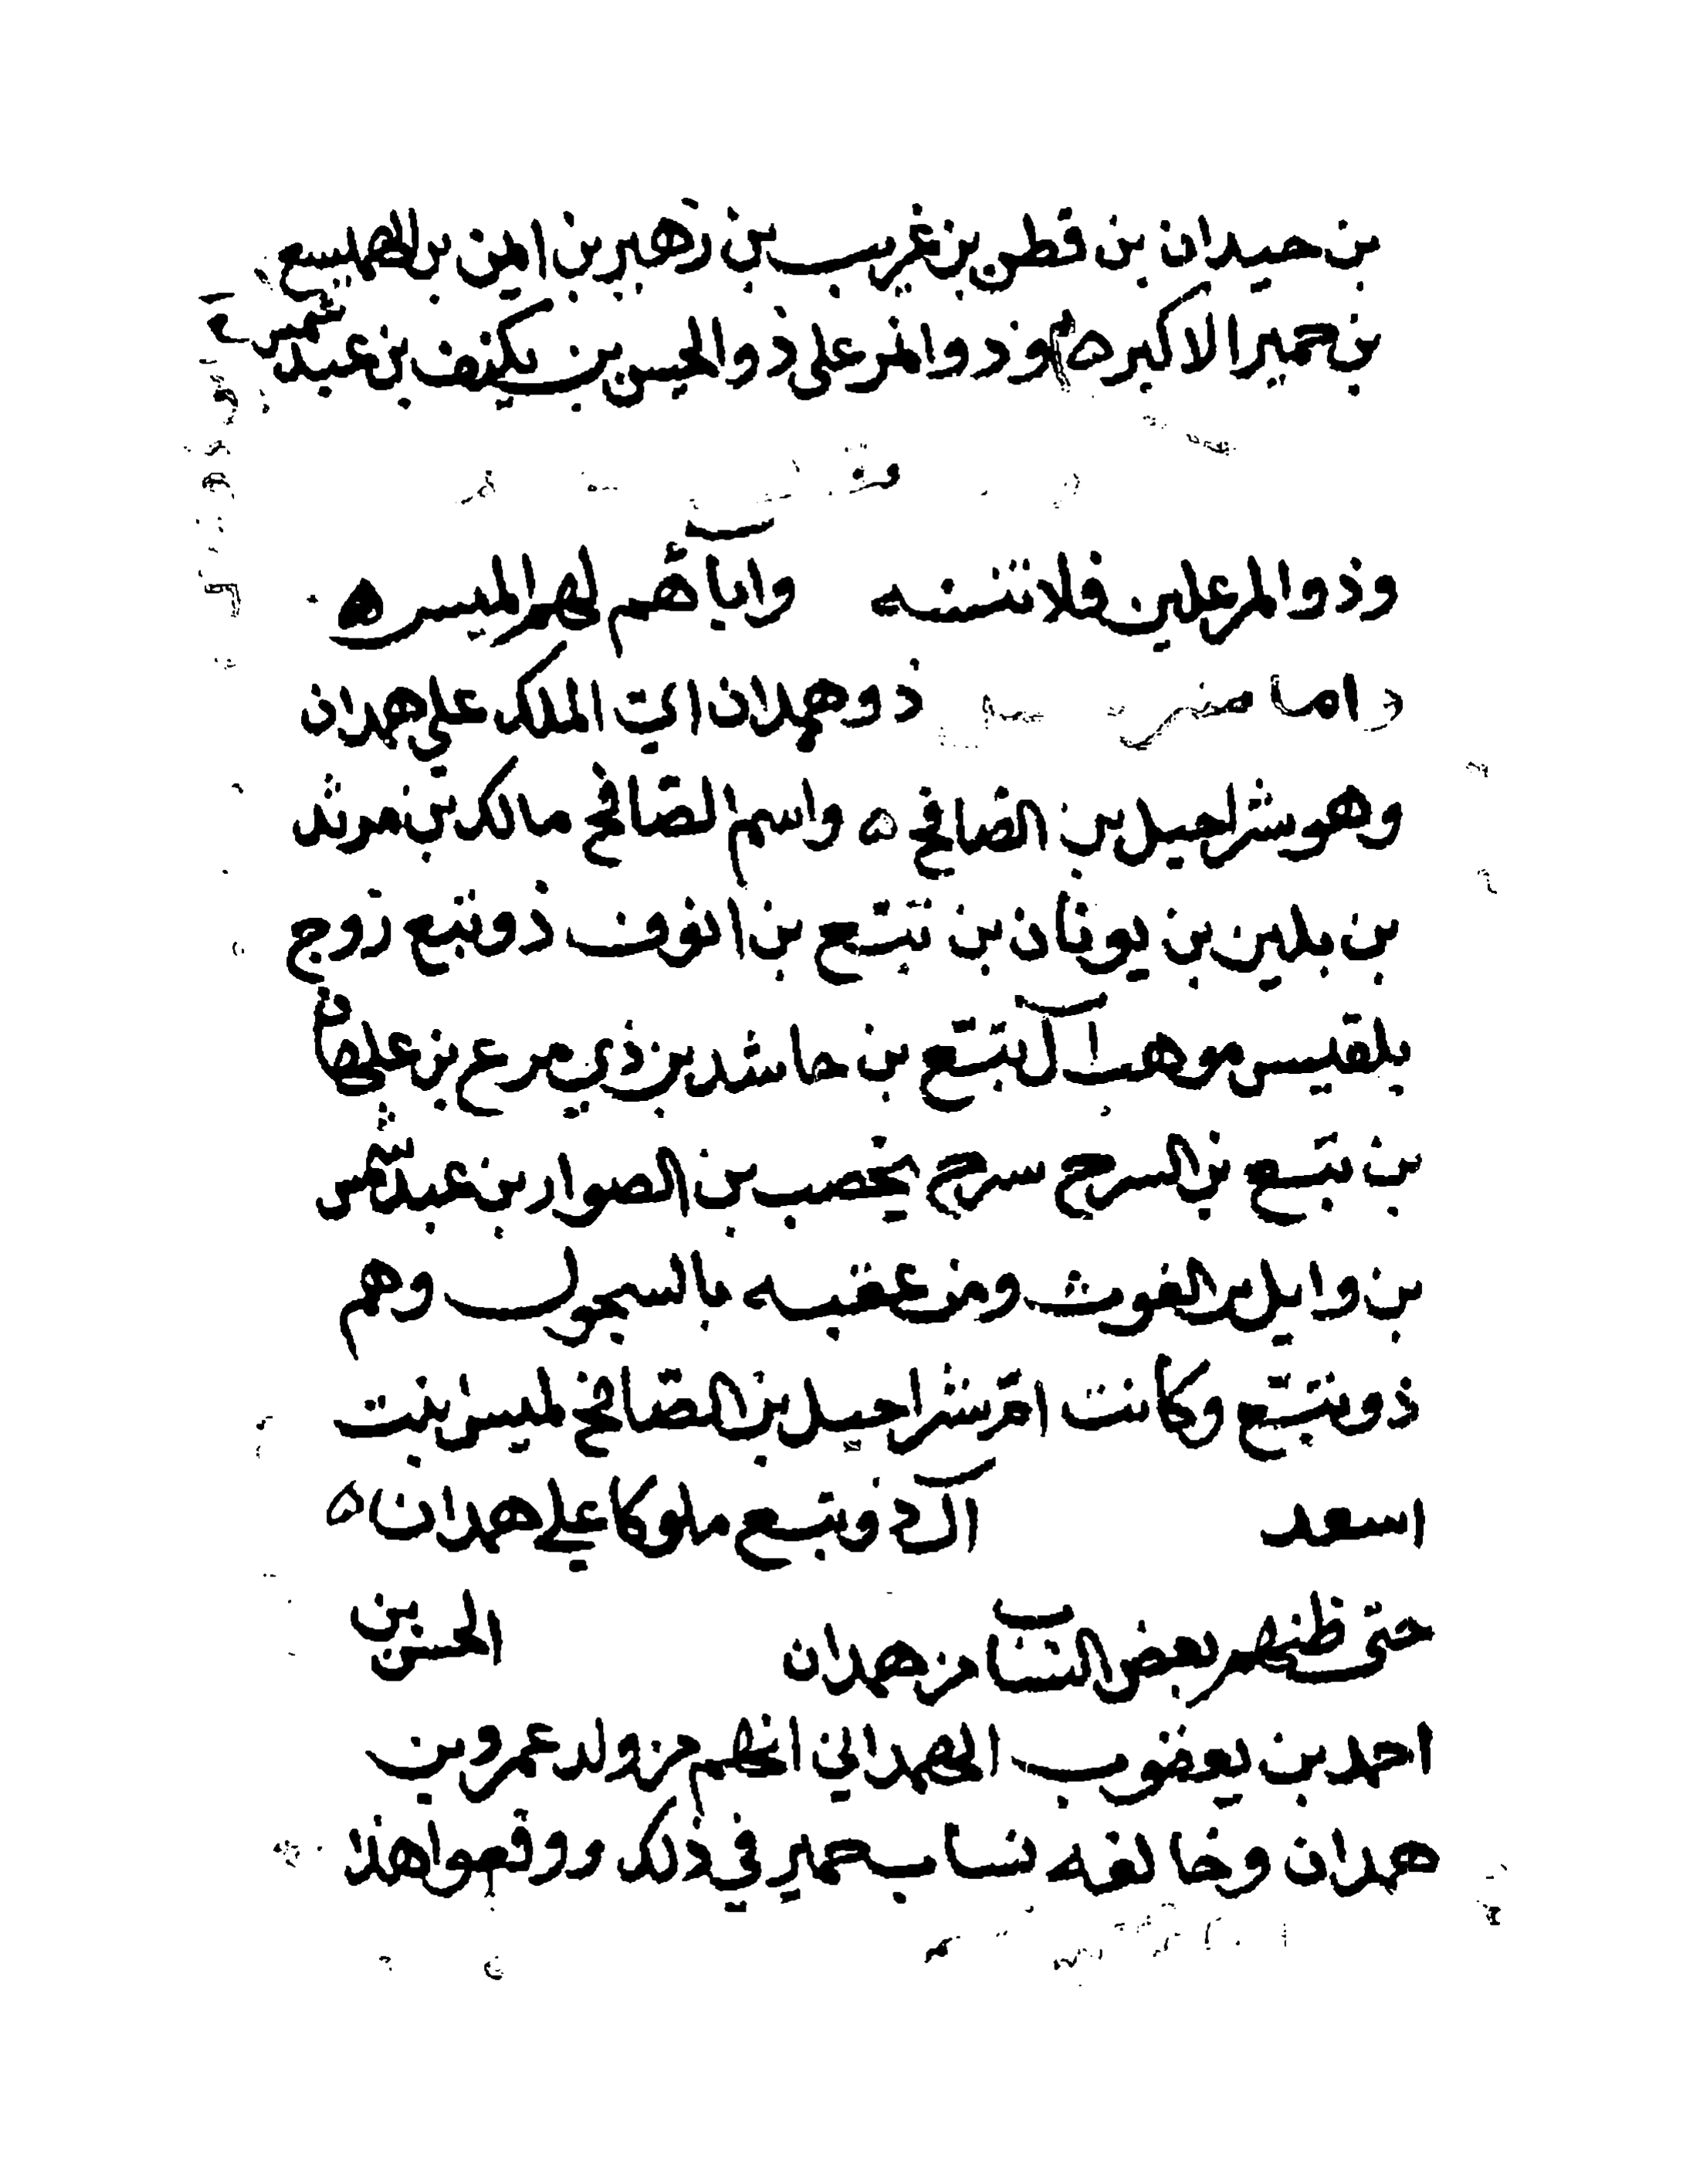 بن حيدان بن قطن بن غريب بن زهير بن ايمن بن الهميسع
بن حمير الاكبر ه وذو المرعلي ذو الحيس بن يكنف بن عبد شمس
وذو المرعلين فلا تنسنه وابآؤهم لهم الميس ه
واما ذو همدان اي الملك على همدان
وهو شراحيل بن الصافح ه واسم الصافح مالك بن مرثد
بن بلين بن يونان بن تبّع بن انوف ذو تبع زوج
بلقيس موهب آل تبّع بن حاشد بن ذي مرع بن علهان
بن تبّع بن السرح سرح يخصب بن الصوار بن عبد شمس
بن وايل بن الغوث ومن عقبه بالسحول وهم
ذو تبّع وكانت امّ شراحيل بن الصافح لميس بنت
اسعد آل ذو تبع ملوكا على همدان ه
حتى ظنهم بعض النساب من همدان الحسن بن
احمد بن يعقوب الهمداني انهم من ولد عمرو بن
همدان وخالفه نساب حمير في ذلك ووقعوا هذا